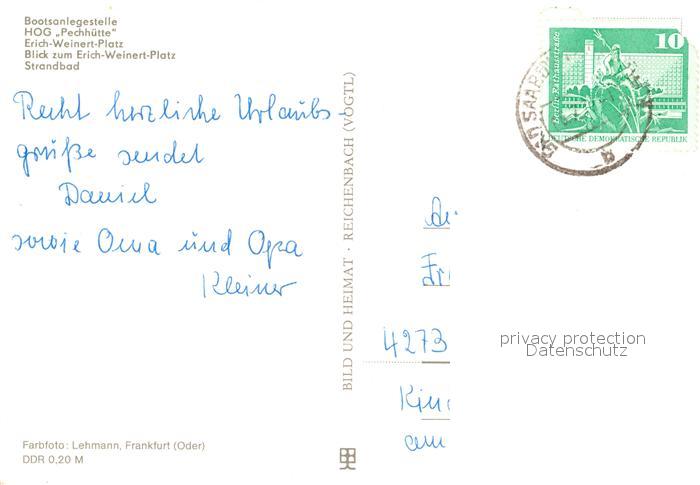 Bootsanlegestelle
HOG „Pechhütte"
Erich-Weinert-Platz
Blick zum Erich-Weinert-Platz
Strandbad
Recht herzliche Urlaubs-
grüße sendet
Daniel
sowie Oma und Opa
Kleiner
Farbfoto: Lehmann, Frankfurt (Oder)
DDR 0,20 M
BILD UND HEIMAT · REICHENBACH (VOGTL)
10
Berlin-Rathausstraße
DEUTSCHE DEMOKRATISCHE REPUBLIK
BAD SAAROW
b
4273
privacy protection
Datenschutz
am